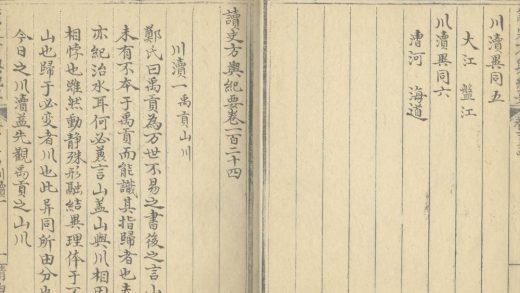 川瀆異同五
大江 盤江
川瀆異同六
漕河 海道
讀史方輿紀要卷一百二十四
川瀆一 禹貢山川
鄭氏曰禹貢為万世不易之書後之言山
未有不本于禹貢而能識其指歸者也
亦紀治水耳何必兼言山蓋山與川相因
相悖也雖然動靜殊形融結異理
山也歸于必変者川也此异同所由分
今日之川瀆盖先觀禹貢之山川